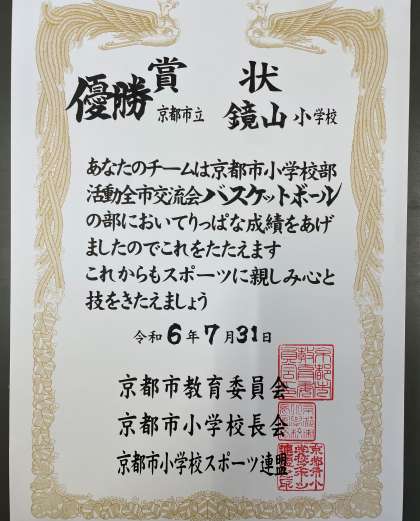 賞状
優勝 京都市立 鏡山小学校
あなたのチームは京都市小学校部
活動全市交流会バスケットボール
の部においてりっぱな成績をあげ
ましたのでこれをたたえます
これからもスポーツに親しみ心と
技をきたえましょう
令和6年7月31日
京都市教育委員会
京都市小学校長会
京都市小学校スポーツ連盟